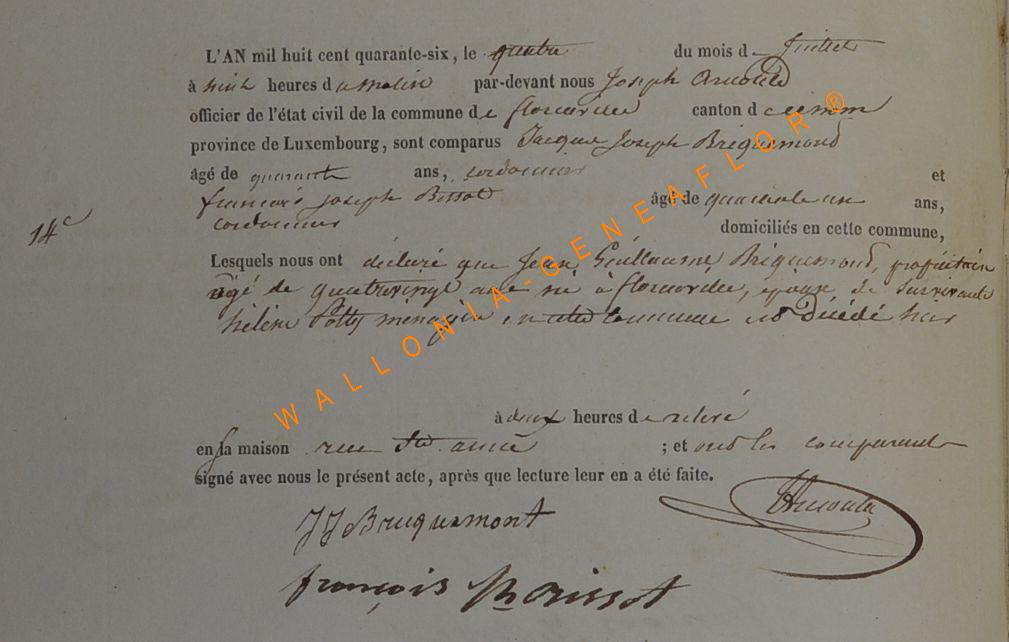 L'AN mil huit cent quarante-six, le quatre du mois de Juillet
à huit heures du matin par-devant nous Joseph Arnould
officier de l'état civil de la commune de florenville canton d
province de Luxembourg, sont comparus Jacque Joseph Briquemond
âgé de quarante ans, cordonnier et
françois joseph Bossot âgé de quarante un ans,
14e
cordonnier domiciliés en cette commune,
Lesquels nous ont déclaré que Jean Guillaume Briquemond, propriétaire
âgé de quatrevingt ans né à florenville, époux de survivante
hélène Potty menagère en cette Commune est Décédé hier
à deux heures de relevé
en sa maison rue Ste anne ; et ont les comparents
signé avec nous le présent acte, après que lecture leur en a été faite.
JJ Bruquemont
françois Boissot
WALLONIA-GENEAFLOR ®